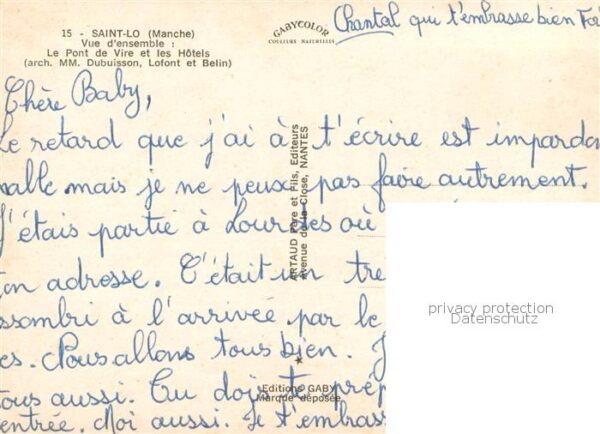 15 - SAINT-LO (Manche)
Vue d'ensemble :
Le Pont de Vire et les Hôtels
(arch. MM. Dubuisson, Lofont et Belin)
GABYCOLOR
COULEURS NATURELLES
Chantal qui t'embrasse bien For
Chère Baby,
Le retard que j'ai à t'écrire est impardon
nable mais je ne peux pas faire autrement.
J'étais partie à Lourdes où
ton adresse. C'était un tre
ssombri à l'arrivée par le
es. Nous allons tous bien. J
tous aussi. Tu dois te prép
entrée. Moi aussi. Je t'embrass
ARTAUD Père et Fils, Editeurs
Avenue de la Close, NANTES
Editions GABY
Marque déposée
privacy protection
Datenschutz